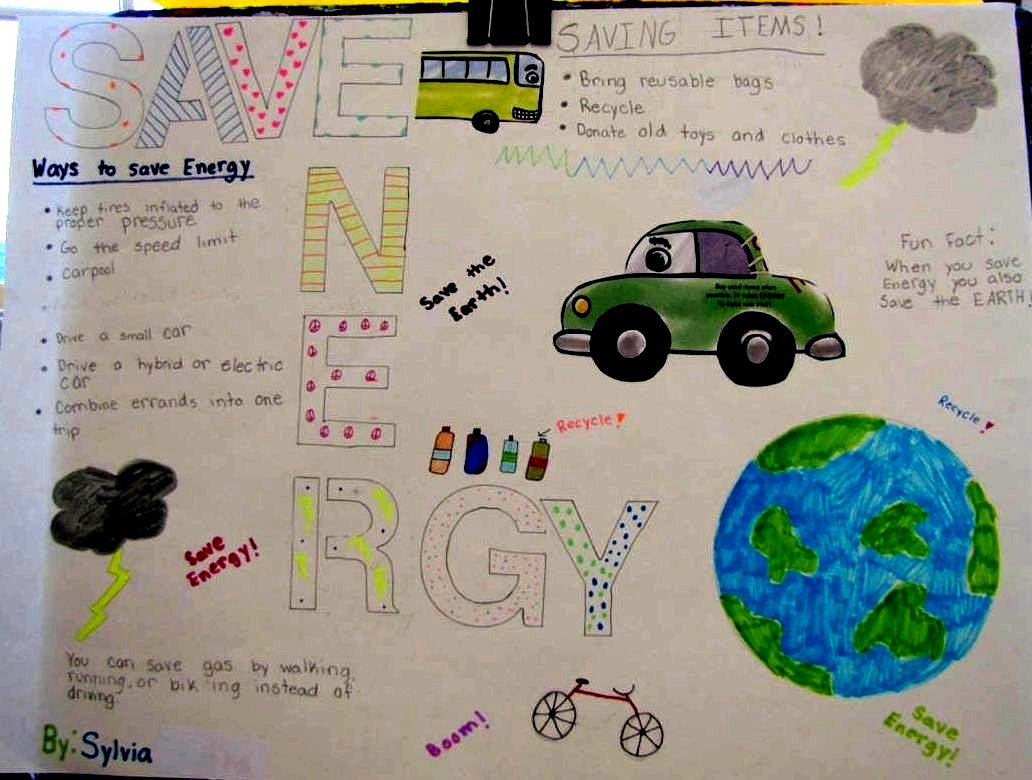 SAVE
ENERGY
SAVING ITEMS!
• Bring reusable bags
• Recycle
• Donate old toys and clothes
Ways to save Energy
• Keep tires inflated to the
proper pressure
• Go the speed limit
• Carpool
• Drive a small car
• Drive a hybrid or electric
car
• Combine errands into one
trip
Save the
Earth!
Fun Fact:
When you save
Energy you also
Save the EARTH!
Recycle!
Recycle!
Save
Energy!
You can save gas by walking,
running, or bik ing instead of
driving.
Boom!
Save
Energy!
By: Sylvia